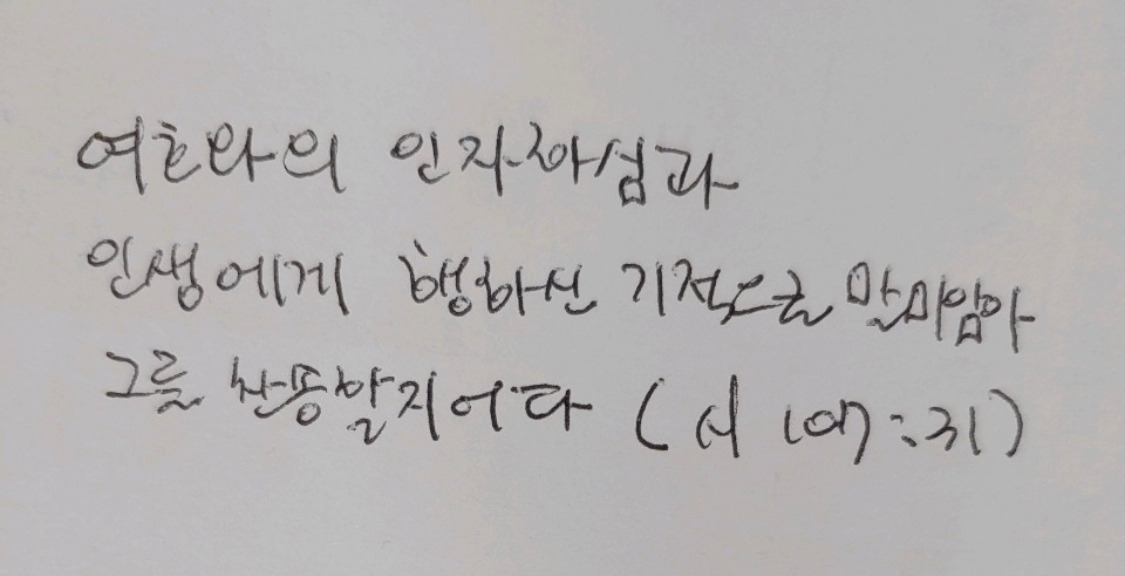 여호와의 인자하심과
인생에게 행하신 기적으로 말미암아
그를 찬송할지어다 (시 107:31)